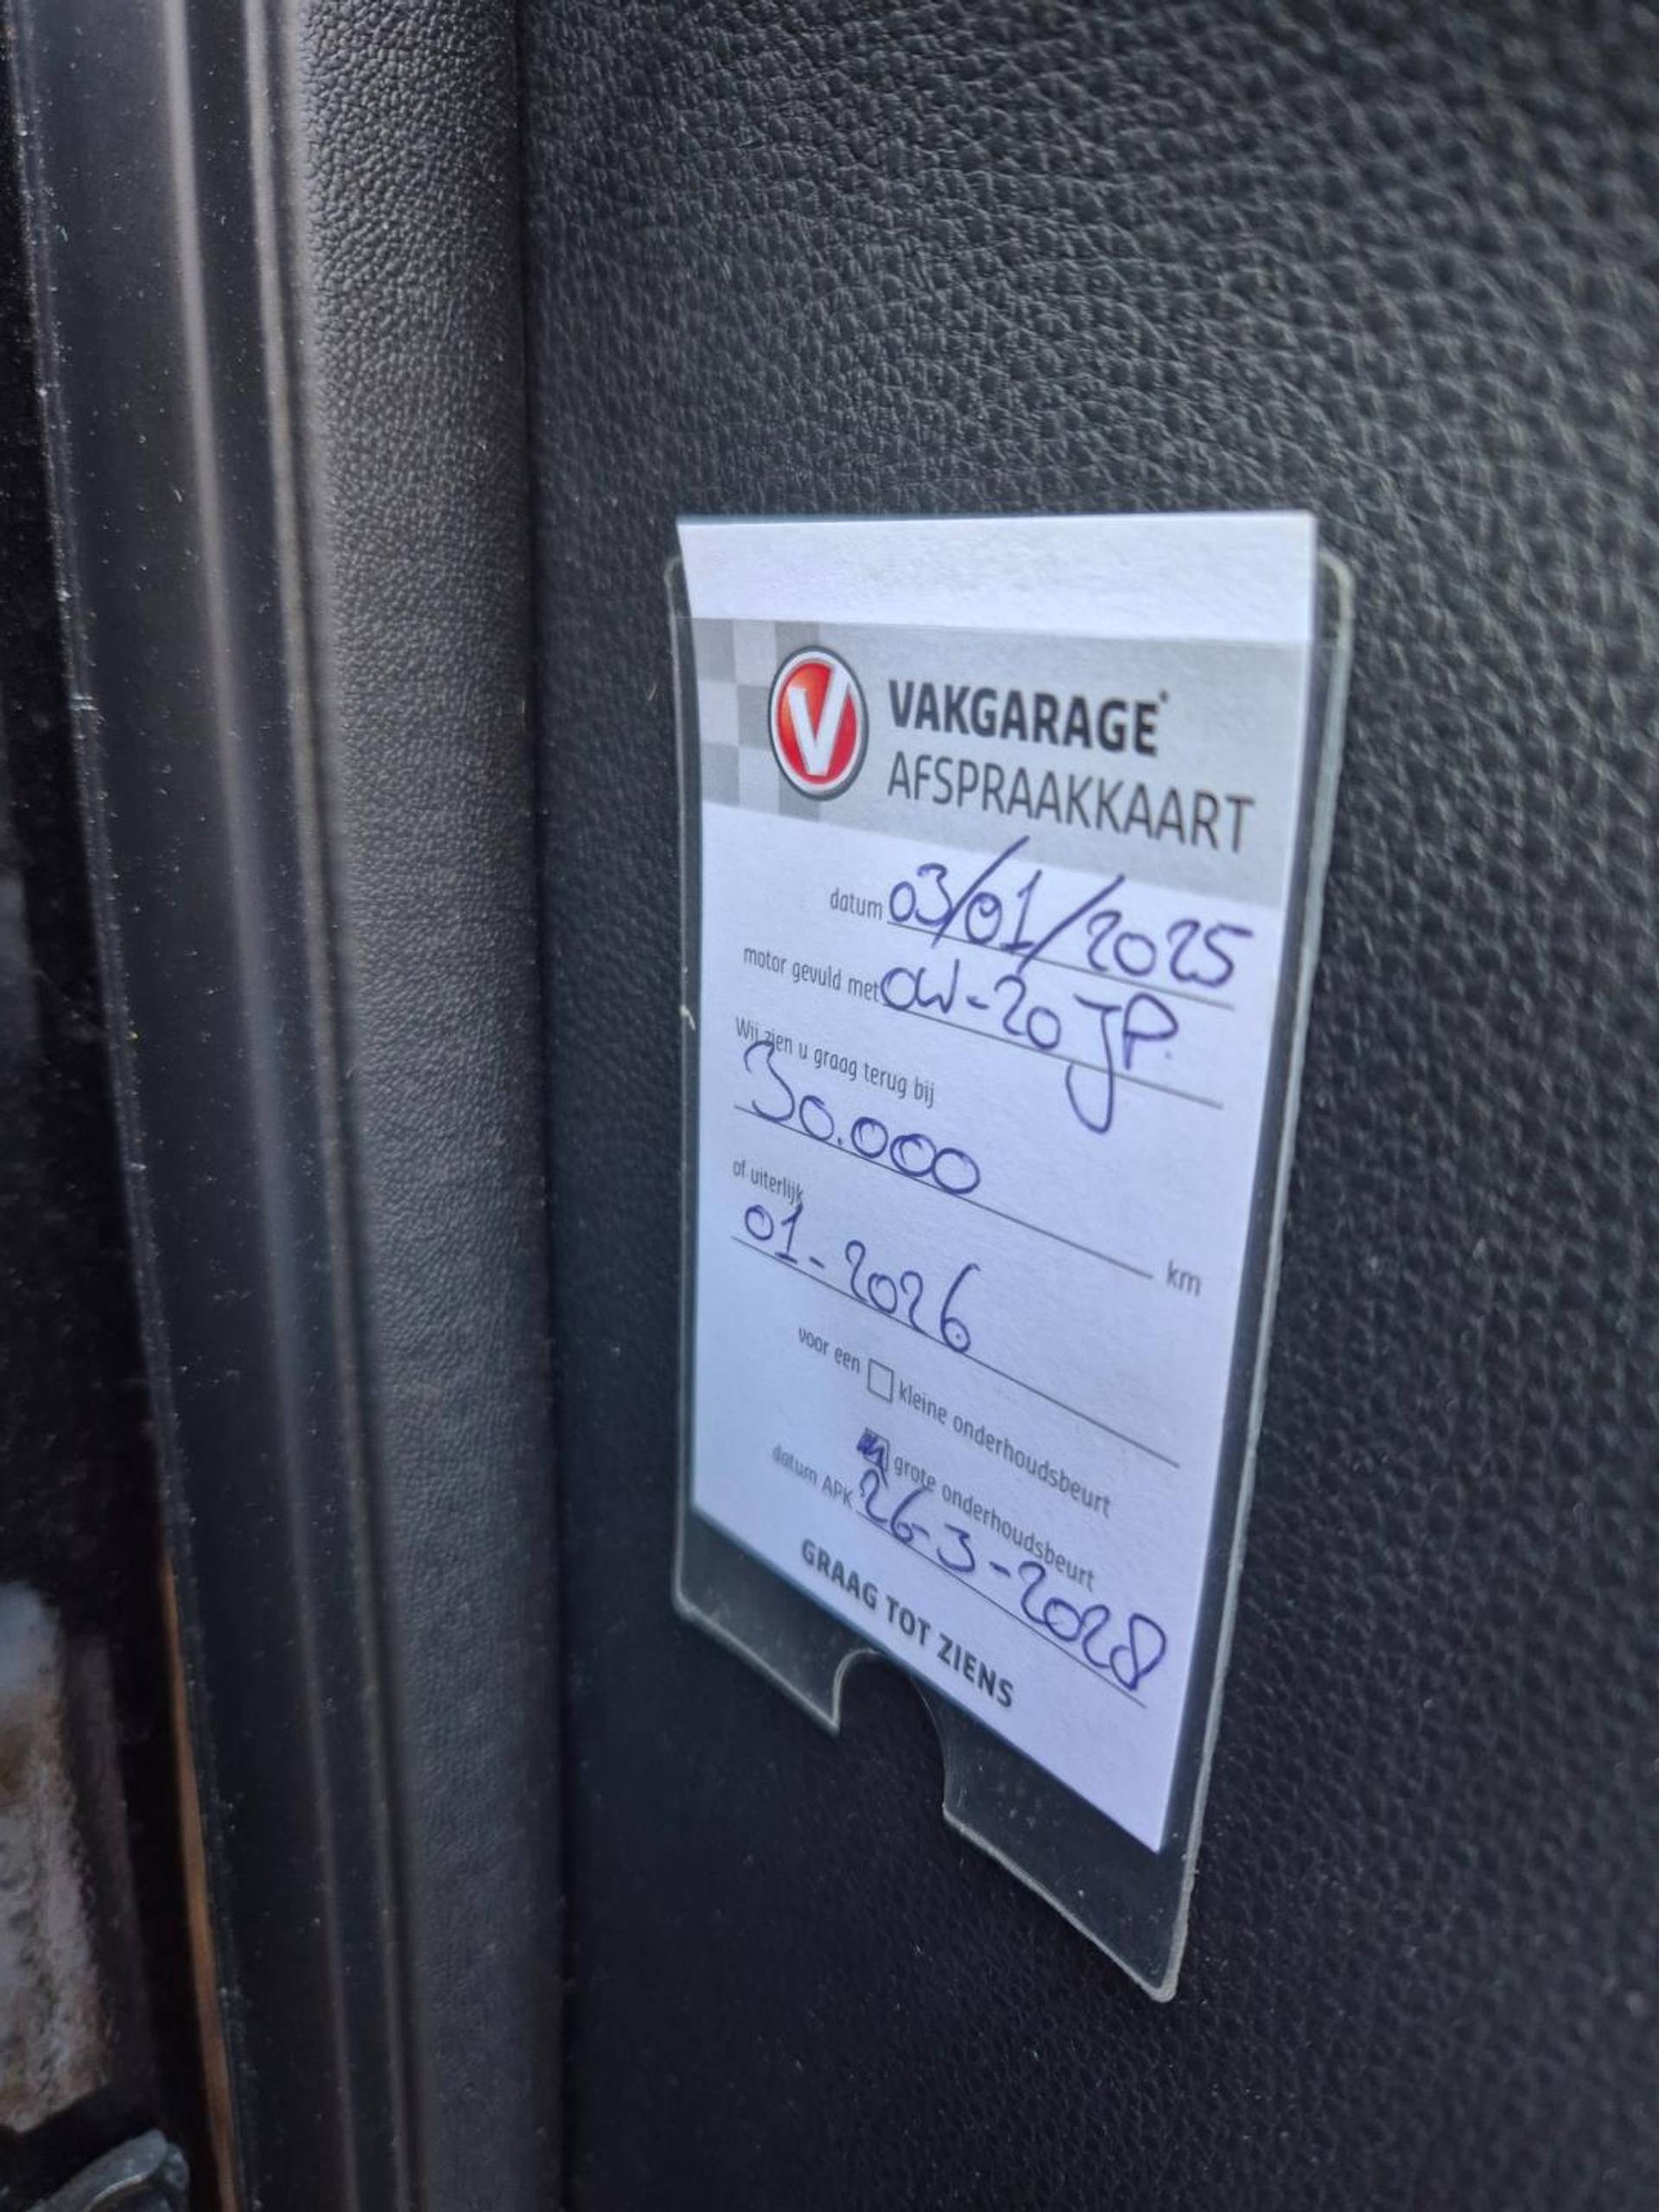 V VAKGARAGE
AFSPRAAKKAART
datum 03/01/2025
motor gevuld met 0W-20 JP.
Wij zien u graag terug bij
30.000 km
of uiterlijk
01-2026
voor een kleine onderhoudsbeurt
grote onderhoudsbeurt
datum APK 26-3-2028
GRAAG TOT ZIENS